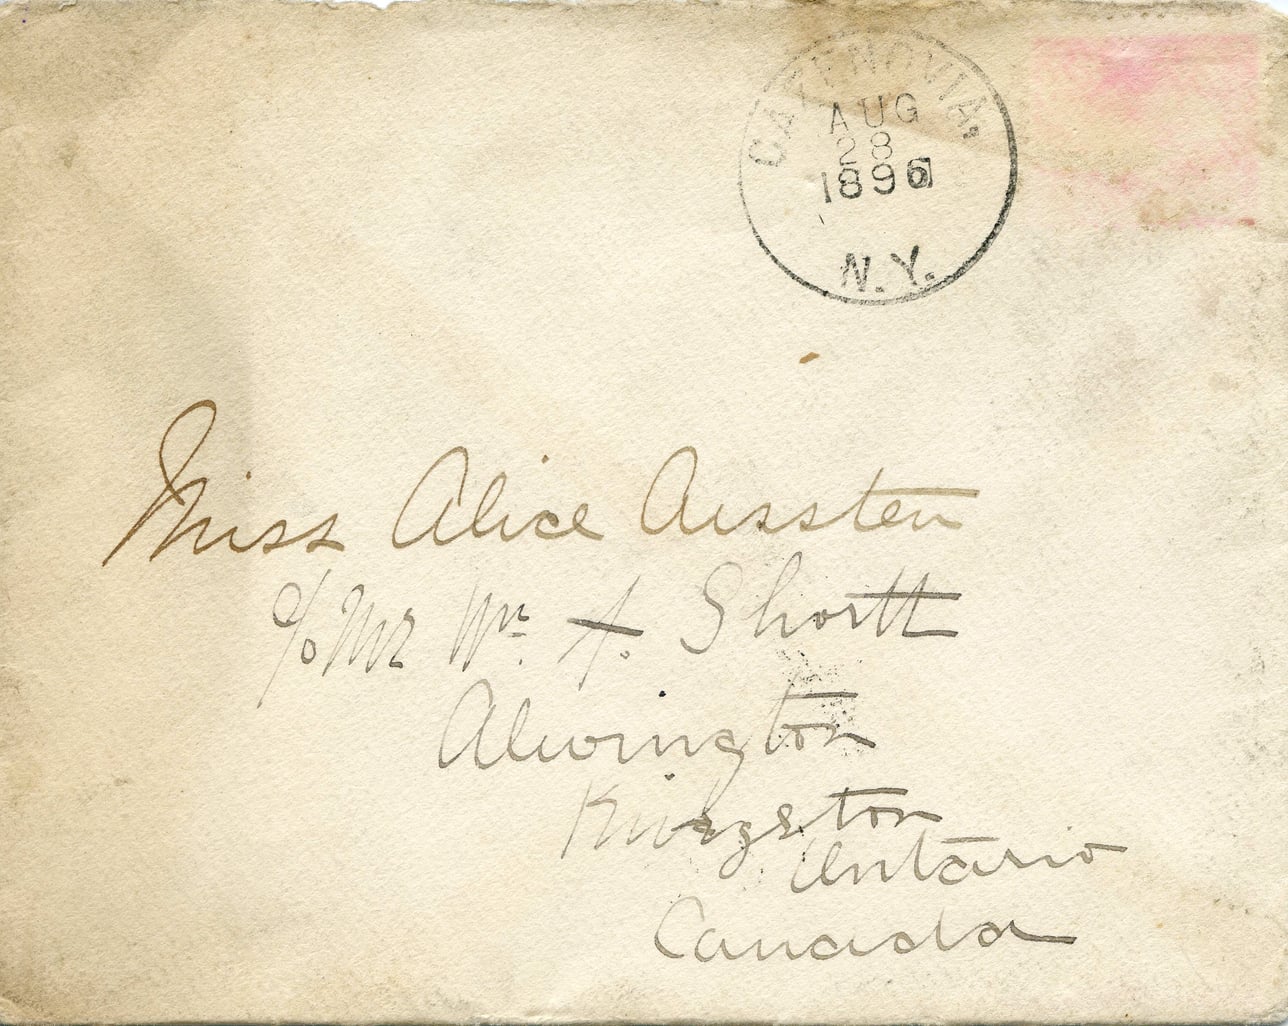 CAZENOVIA,
AUG
28
1896
N.Y.
Miss Alice Aussten
c/o Mr Wm. A. Shortt
Alwington
Kingston
Ontario
Canada